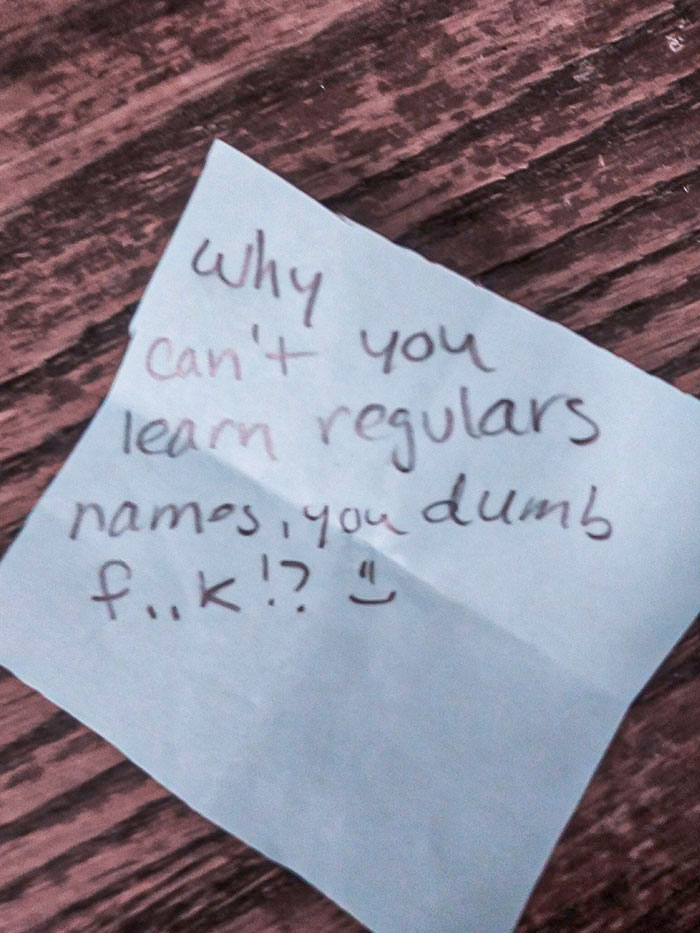 why
can't you
learn regulars
names, you dumb
f..k!? :)